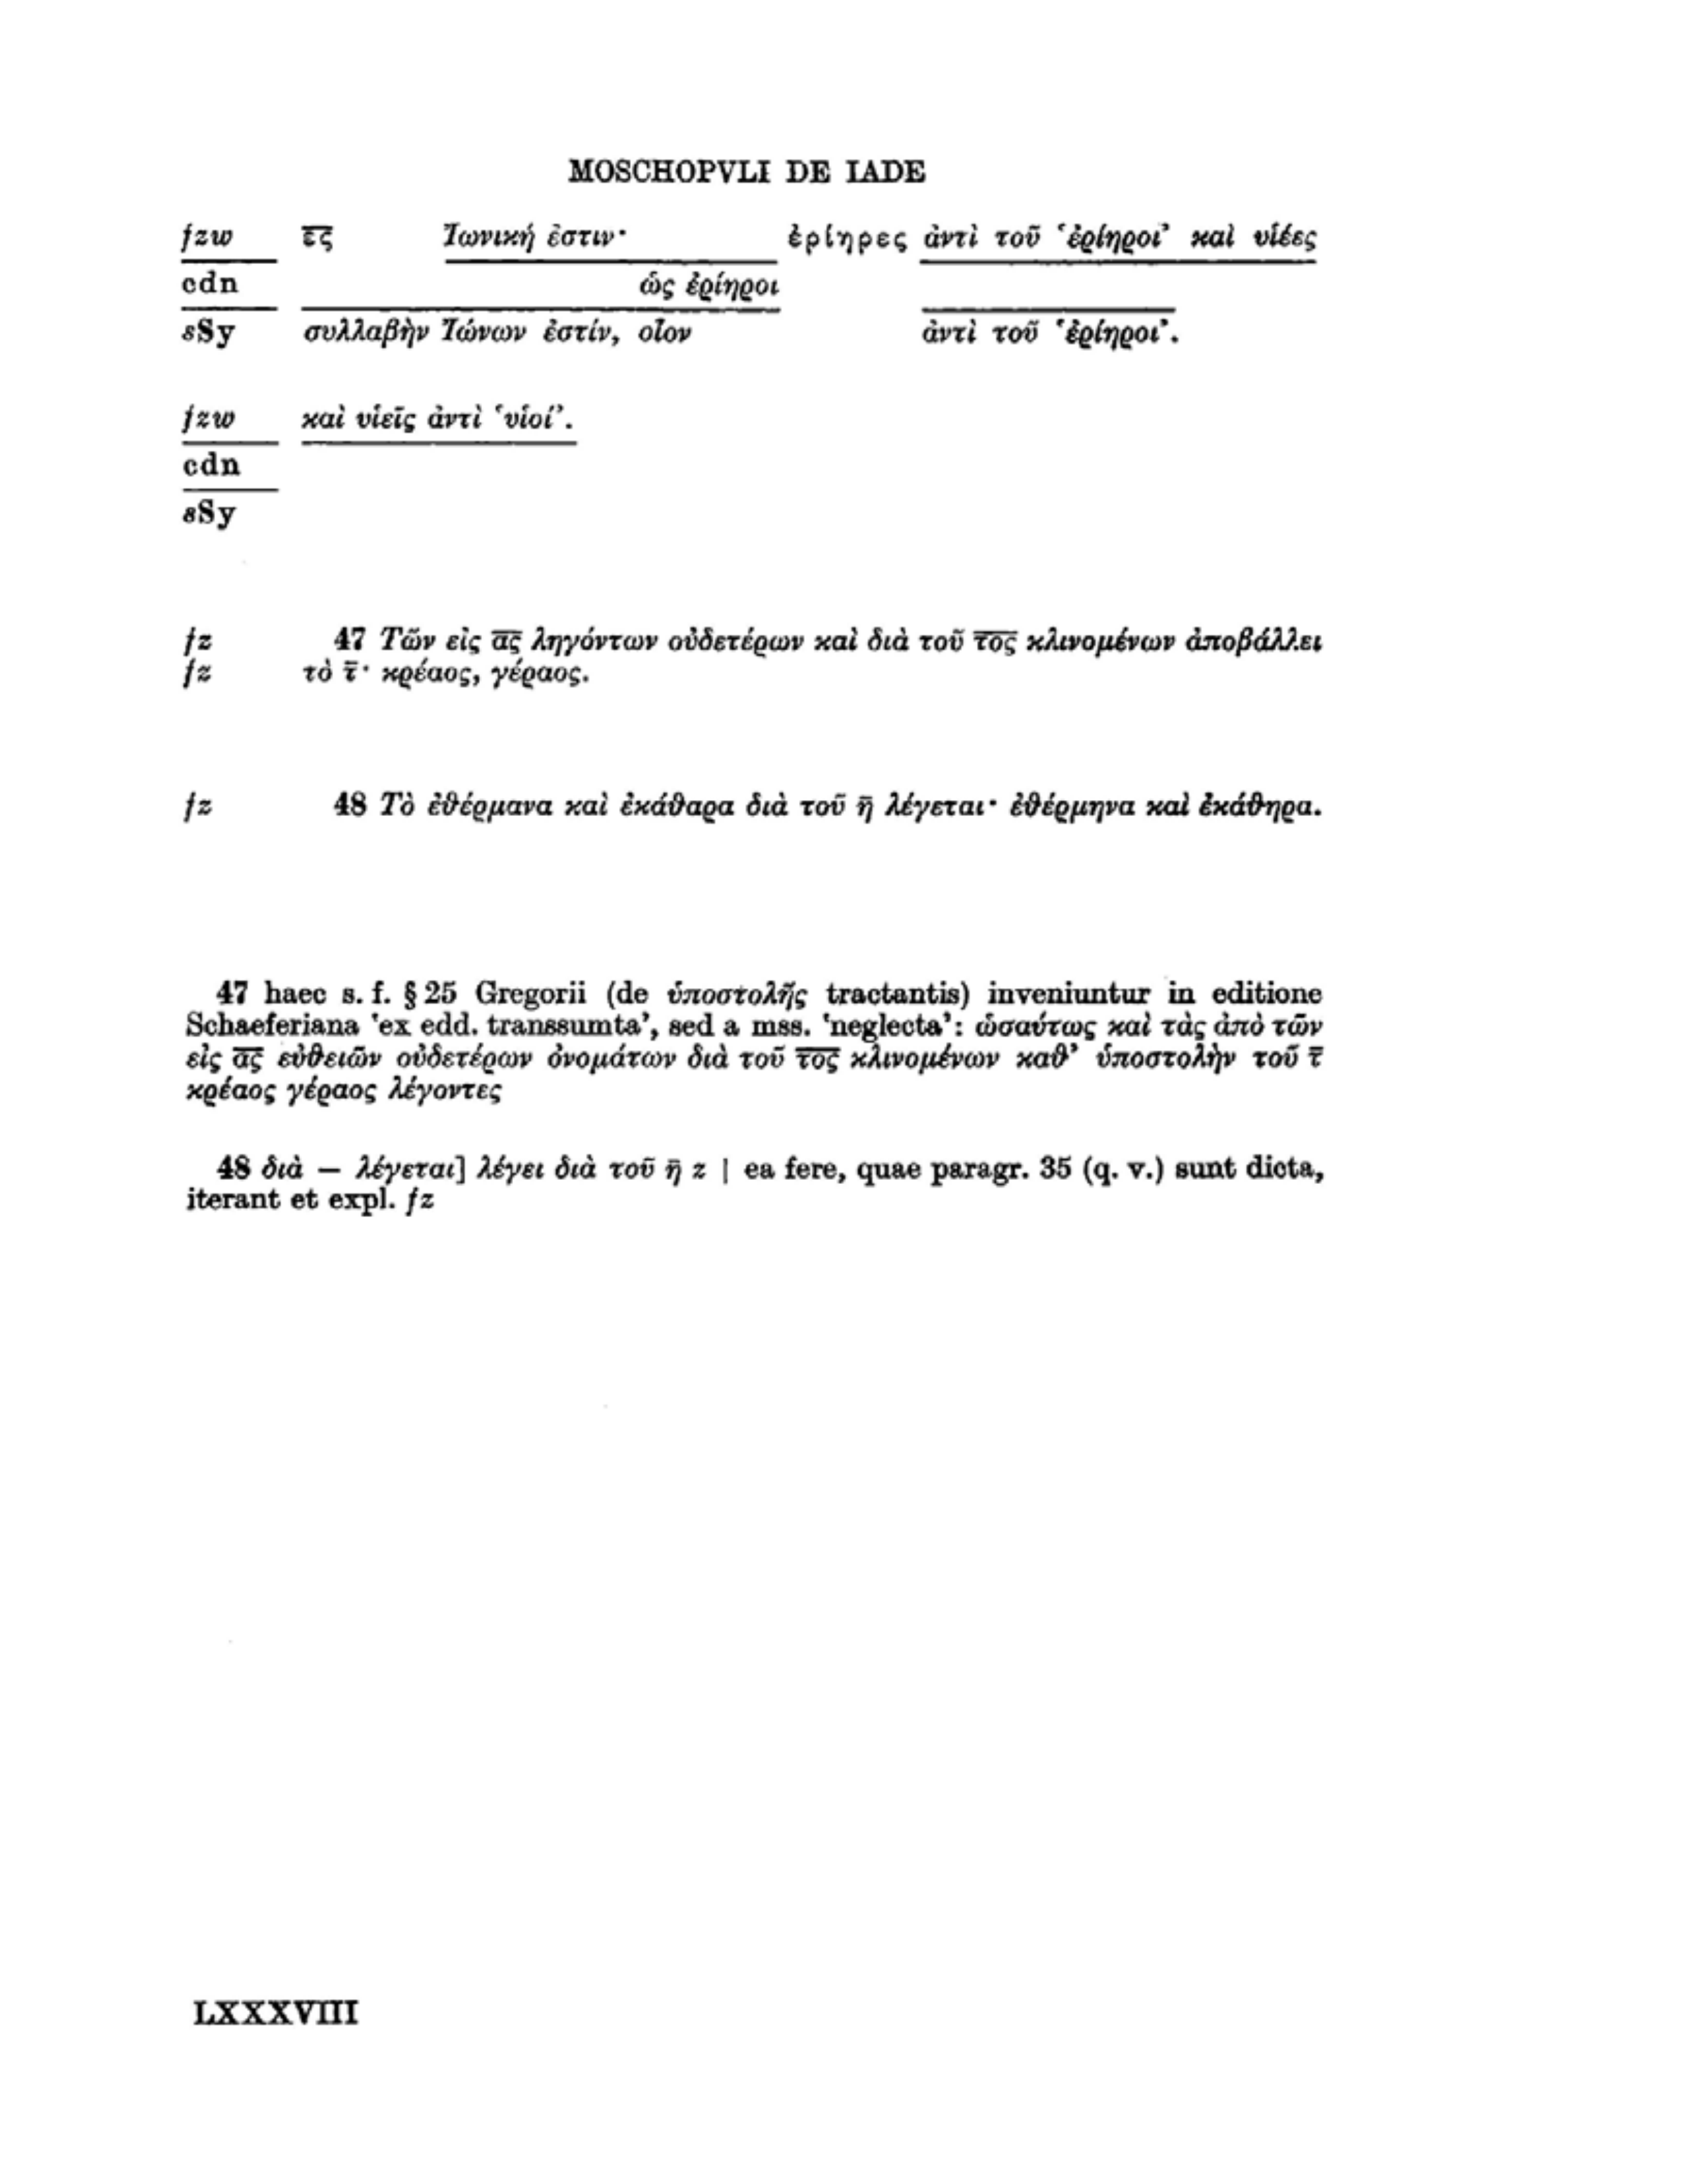 MOSCHOPVLI DE IADE
fzw ε̅ς̅ Ἰωνική ἐστιν· ἐρίηρες ἀντὶ τοῦ ‘ἐρίηροι’ καὶ υἱέες
cdn ὡς ἐρίηροι
sSy συλλαβὴν Ἰώνων ἐστίν, οἷον ἀντὶ τοῦ ‘ἐρίηροι’.
fzw καὶ υἱεῖς ἀντὶ ‘υἱοί’.
cdn
sSy
fz 47 Τῶν εἰς α̅ς̅ ληγόντων οὐδετέρων καὶ διὰ τοῦ τ̅ο̅ς̅ κλινομένων ἀποβάλλει
fz τὸ τ̅· κρέαος, γέραος.
fz 48 Τὸ ἐθέρμανα καὶ ἐκάθαρα διὰ τοῦ η̅ λέγεται· ἐθέρμηνα καὶ ἐκάθηρα.
47 haec s. f. § 25 Gregorii (de ὑποστολῆς tractantis) inveniuntur in editione
Schaeferiana ‘ex edd. transsumta’, sed a mss. ‘neglecta’: ὡσαύτως καὶ τὰς ἀπὸ τῶν
εἰς α̅ς̅ εὐθειῶν οὐδετέρων ὀνομάτων διὰ τοῦ τ̅ο̅ς̅ κλινομένων καθ’ ὑποστολὴν τοῦ τ̅
κρέαος γέραος λέγοντες
48 διὰ — λέγεται] λέγει διὰ τοῦ η̅ z | ea fere, quae paragr. 35 (q. v.) sunt dicta,
iterant et expl. fz
LXXXVIII